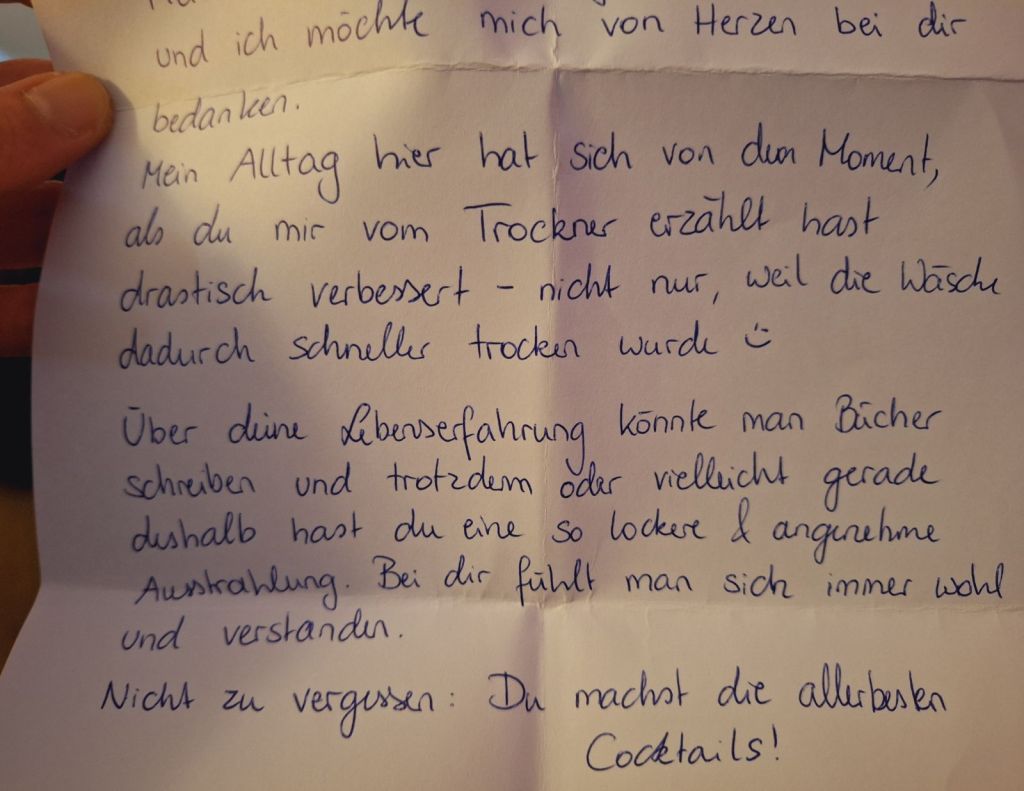 und ich möchte mich von Herzen bei dir
bedanken.
Mein Alltag hier hat sich von dem Moment,
als du mir vom Trockner erzählt hast
drastisch verbessert - nicht nur, weil die Wäsche
dadurch schneller trocken wurde :)
Über deine Lebenserfahrung könnte man Bücher
schreiben und trotzdem oder vielleicht gerade
deshalb hast du eine so lockere & angenehme
Ausstrahlung. Bei dir fühlt man sich immer wohl
und verstanden.
Nicht zu vergessen: Du machst die allerbesten
Cocktails!